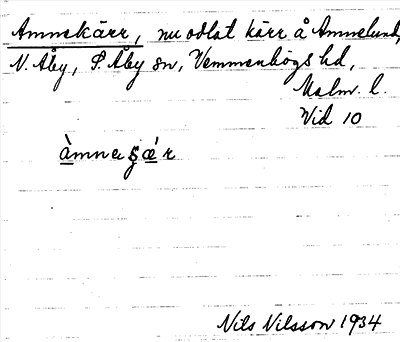 Amnekärr, nu odlat kärr å Amnelund,
N. Åby, S. Åby sn, Vemmenhögs hd,
Malm. l.
Vid 10
àmneʂǽr
Nils Nilsson 1934